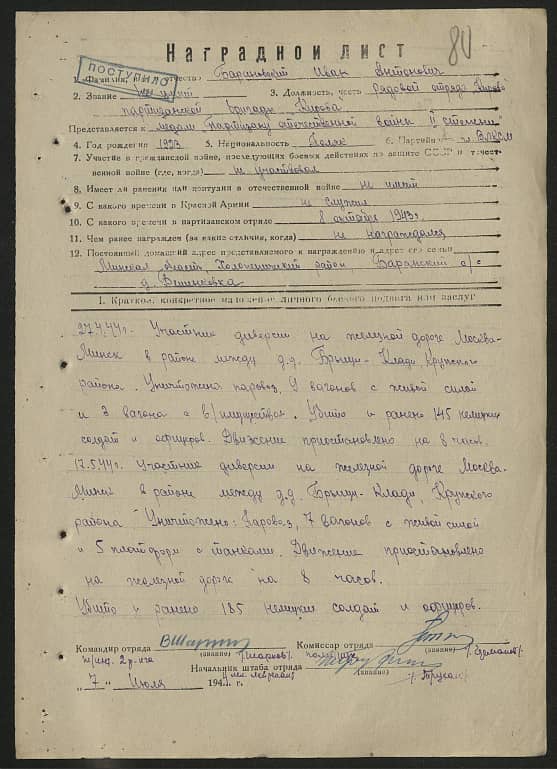 80
Наградной лист
ПОСТУПИЛО
1. Фамилия, имя, отчество Бариновский Иван Антонович
2. Звание не имеет 3. Должность, часть рядовой отряда Кирова
партизанской бригады Кирова
Представляется к медали "Партизану отечественной войны" II степени
4. Год рождения 1923 5. Национальность Поляк 6. Партийность чл. ВЛКСМ
7. Участие в гражданской войне, последующих боевых действиях по защите СССР и отечест-
венной войне (где, когда) не участвовал
8. Имеет ли ранения или контузии в отечественной войне не имеет
9. С какого времени в Красной Армии не служил
10. С какого времени в партизанском отряде 8 октября 1943 г.
11. Чем ранее награжден (за какие отличия, когда) не награждался
12. Постоянный домашний адрес представляемого к награждению и адрес его семьи
Минская область, район, с/с
д.
I. Краткое, конкретное изложение личного боевого подвига или заслуг
27.4.44 г. Участник диверсии на железной дороге Москва-
Минск в районе между д.д. Брыщи-Клади, Крупского
района. Уничтожено паровоз, 9 вагонов с живой силой
и 3 вагона с в/имуществом. Убито и ранено 145 немецких
солдат и офицеров. Движение приостановлено на 8 часов.
17.5.44 г. Участник диверсии на железной дороге Москва-
Минск в районе между д.д. Брыщи-Клади, Крупского
района Уничтожено: Паровоз, 7 вагонов с живой силой
и 5 платформ с танками. Движение приостановлено
на железной дороге на 8 часов.
Убито и ранено 185 немецких солдат и офицеров.
Командир отряда Комиссар отряда
(звание) /Шарков/ (звание)
Начальник штаба отряда
(звание)
„7" Июля 194 г.